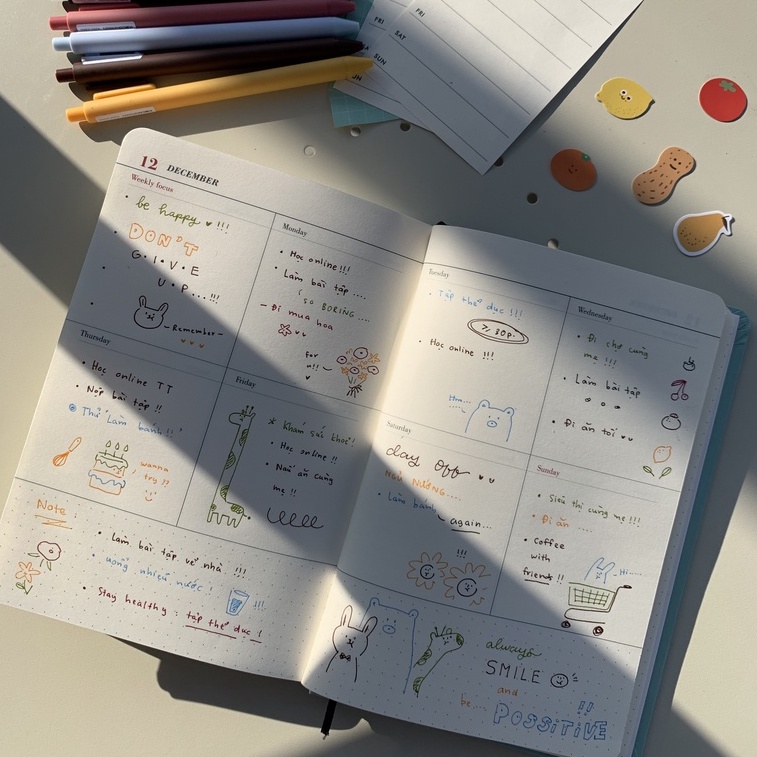 FRI
SAT
SUN
FRI
12 DECEMBER
Weekly focus
• be happy !!!
• DON'T
G•I•V•E
U•P...!!!
- Remember -
Monday
• Học online !!!
• Làm bài tập ....
(SO BORING ....
- Đi mua hoa
For
u!!
Tuesday
• Tập thể dục !!!
7.30p.
• Học online !!!
Hm...
Wednesday
• Đi chợ cùng
mẹ !!!
• Làm bài tập
• Đi ăn tối
Thursday
• Học online TT
• Nộp bài tập !!
Thử làm bánh !!
wanna
try ??
Friday
* Khám sức khoẻ!
• Học online !!
• Nấu ăn cùng
mẹ !!
Saturday
day off
NGỦ NƯỚNG....
• Làm bánh
again...
!!!
Sunday
• Siêu thị cùng mẹ !!!
• Đi ăn ....
• Coffee
with
friends !!
Hi.....
Note
• Làm bài tập về nhà !!!
• uống nhiều nước !
!!!
• Stay healthy : tập thể dục !
always
SMILE
and
be....
POSSiTiVE
!!